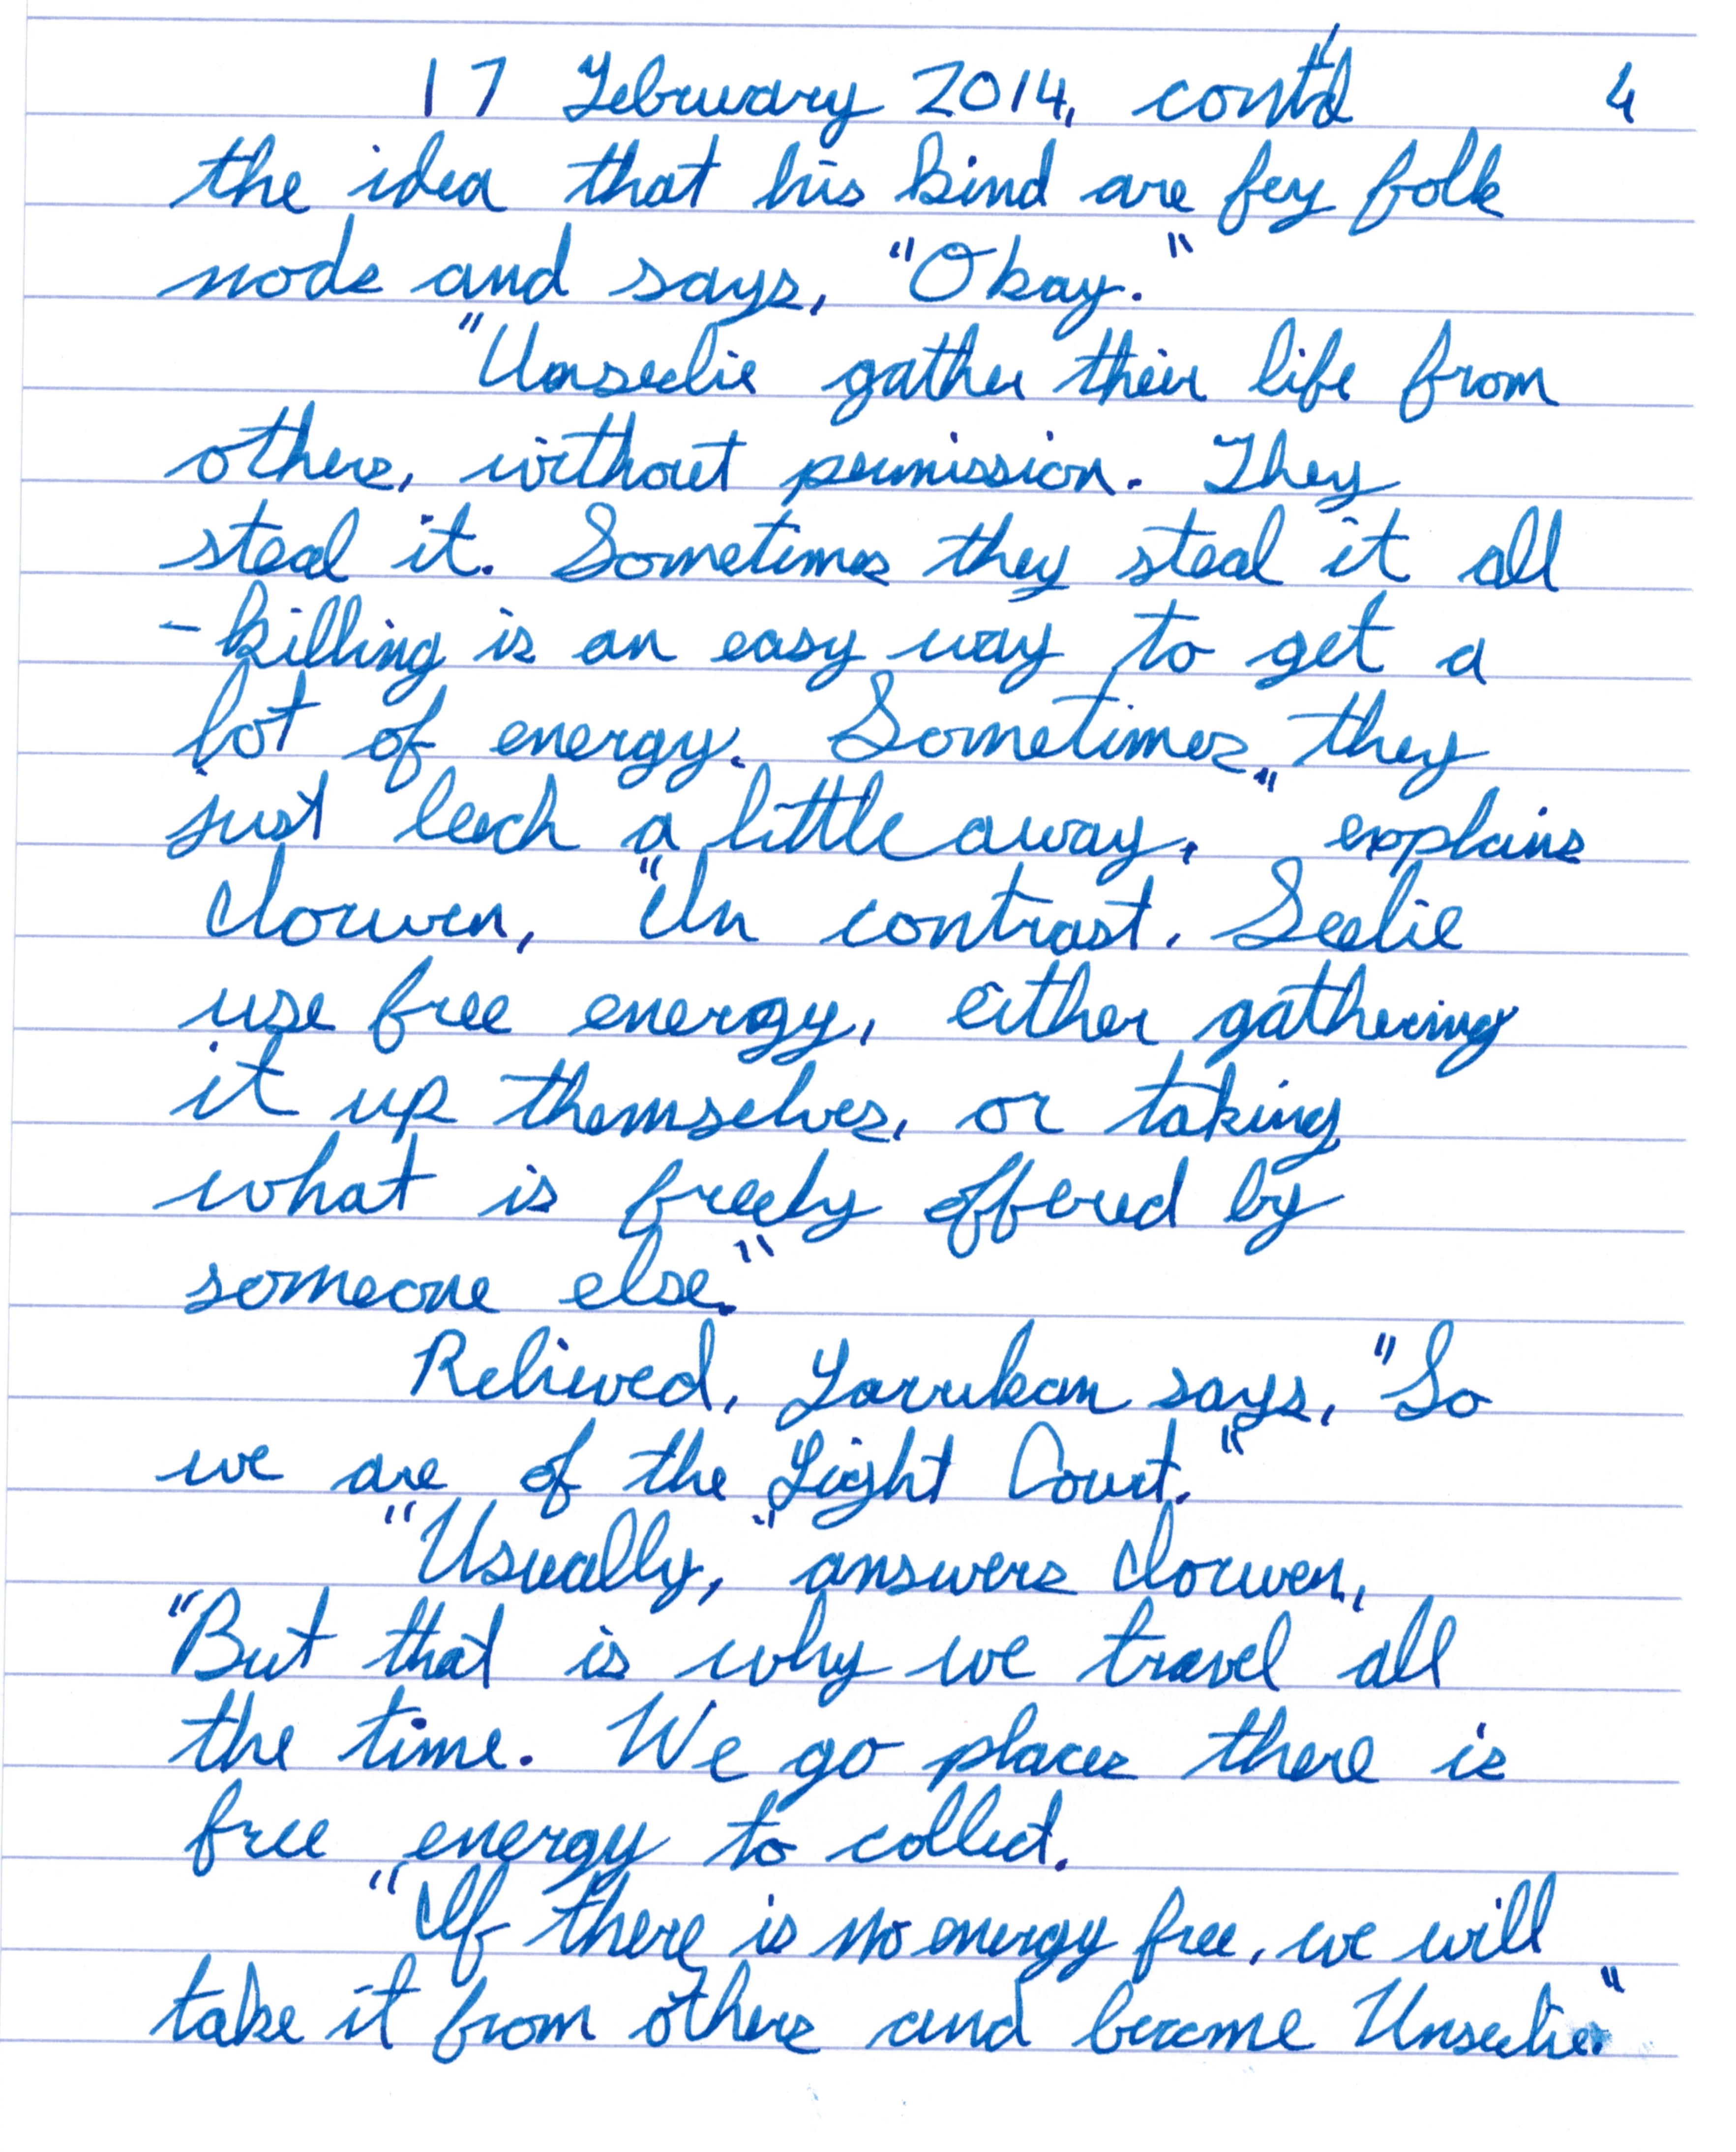 17 February 2014, cont'd 4
the idea that his kind are fey folk
nods and says, "Okay."
"Unseelie gather their life from
others, without permission. They
steal it. Sometimes they steal it all
- killing is an easy way to get a
lot of energy. Sometimes they
just leech a little away," explains
Iorwen, "In contrast, Seelie
use free energy, either gathering
it up themselves, or taking
what is freely offered by
someone else."
Relieved, Yarrukan says, "So
we are of the Light Court."
"Usually," answers Iorwen,
"But that is why we travel all
the time. We go places there is
free energy to collect.
"If there is no energy free, we will
take it from others and become Unseelie."